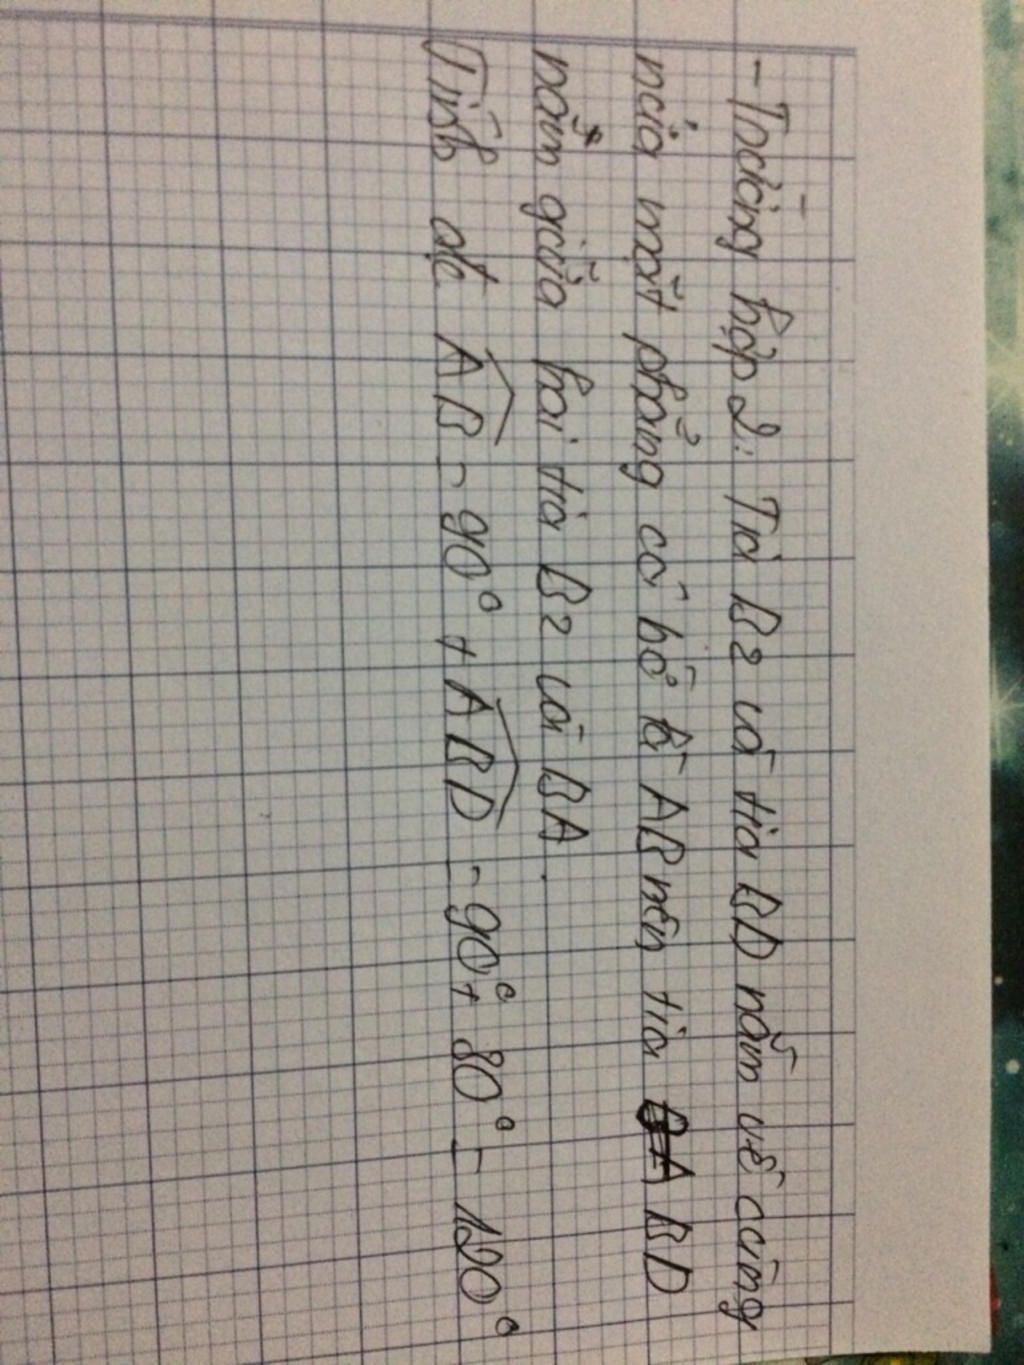 - Trường hợp 2: Tia Bz và tia BD nằm về cùng
nửa mặt phẳng có bờ là AB nên tia BD
nằm giữa hai tia Bz và BA.
Tính đc AB = 90° + ABD = 90° + 30° = 120°